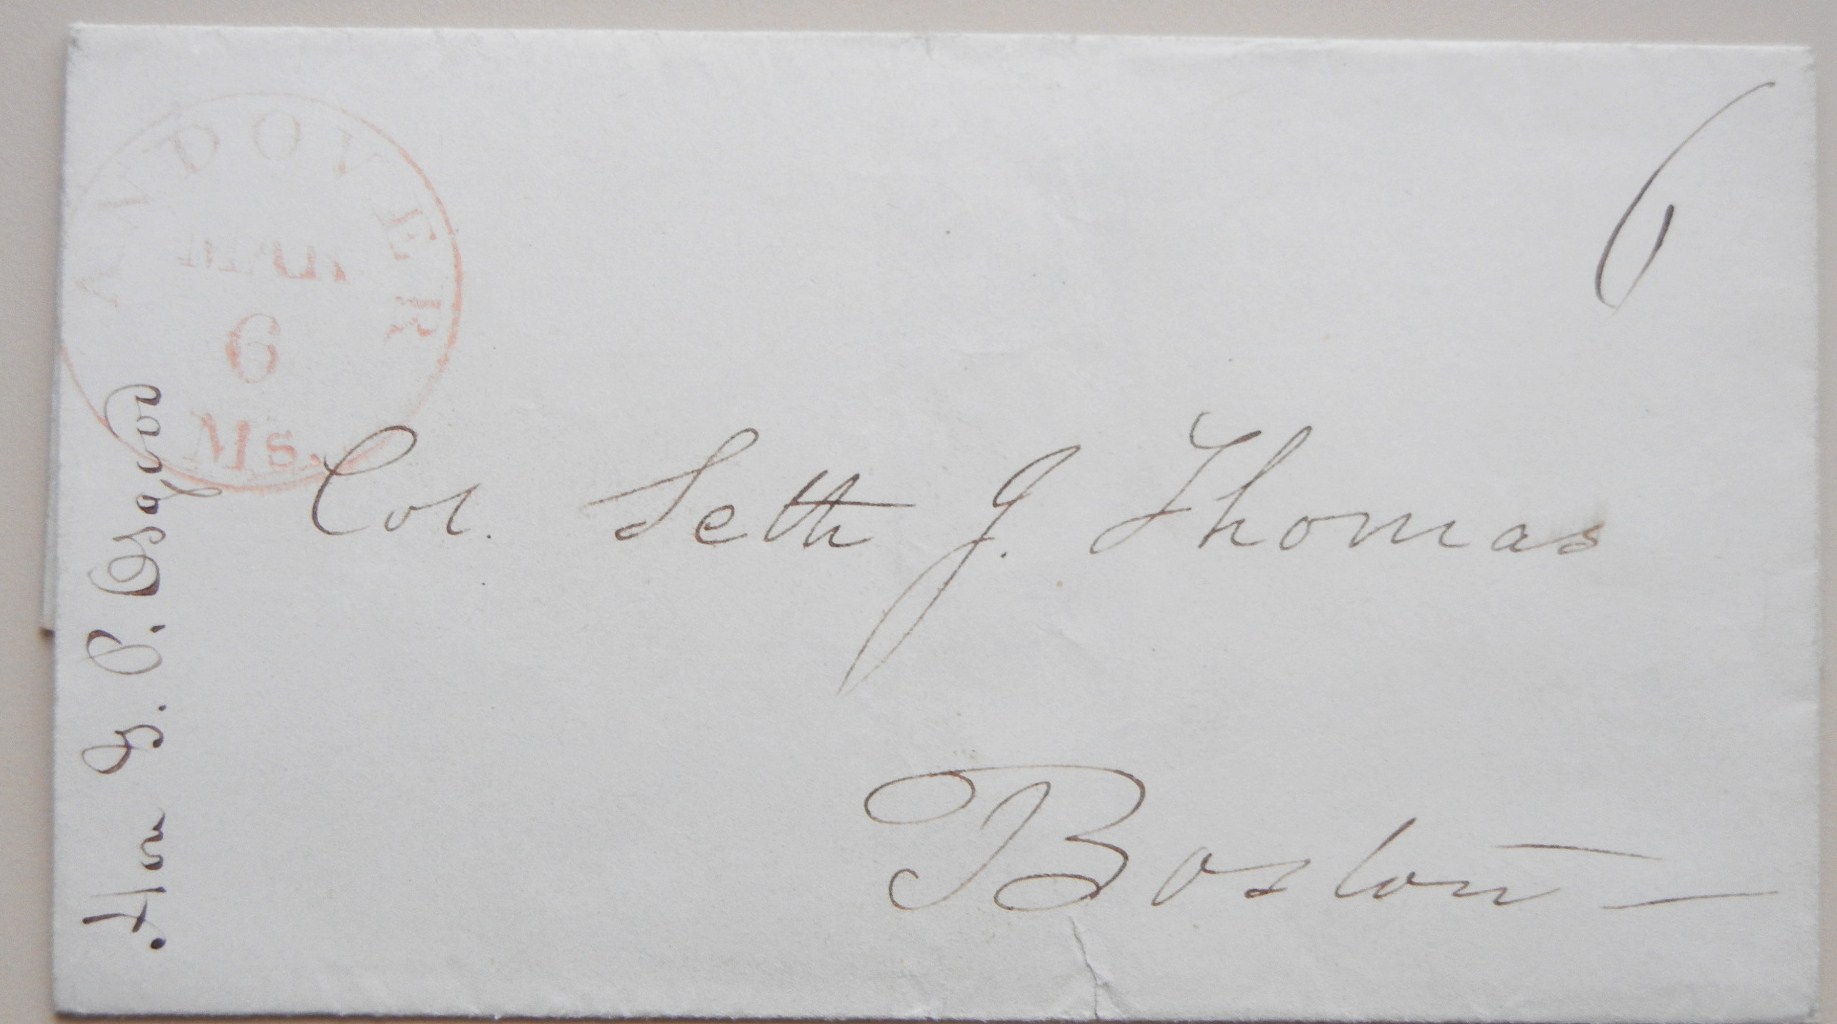 ANDOVER
MAR.
6
Ms.
6
Col. Seth J. Thomas
Boston
Hon G. P. Osgood